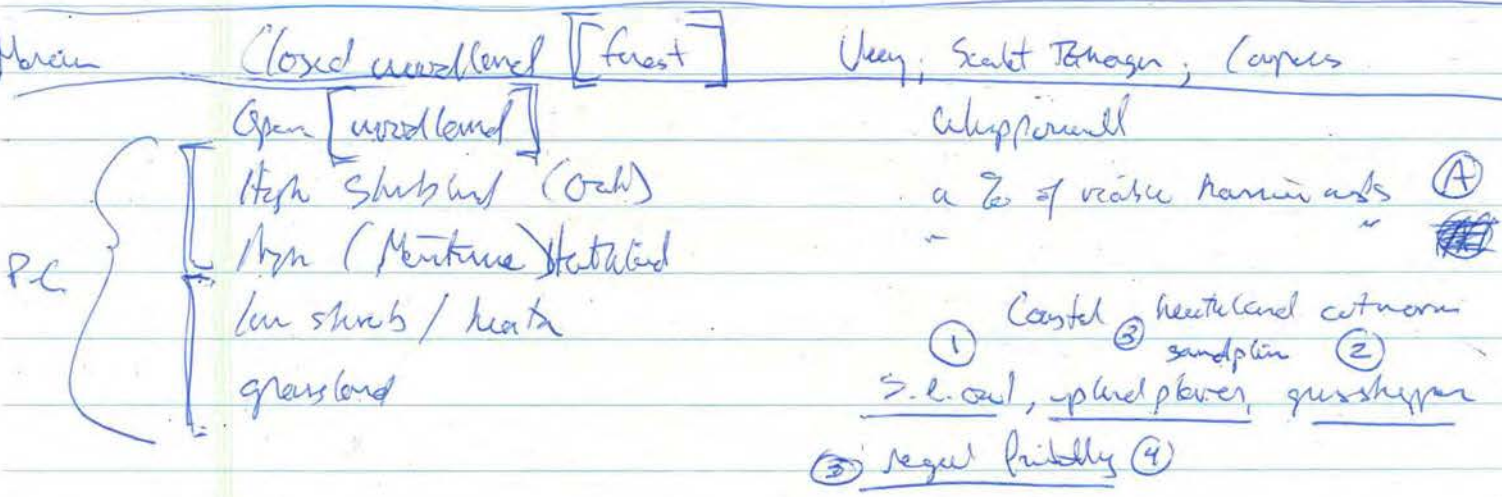 Closed woodland [forest] Veery, Scarlet Tanager,
Open [woodland] whipporwill
High Shrubland (Oak) a % of viable harrier nests (A)
High (Maritime) Heathland " "
P.C. low shrub / heath Coastal heathland cutworm
(1) (3) sandplain (2)
grassland S.e. owl, upland plover, grasshopper
regal fritillary (4)